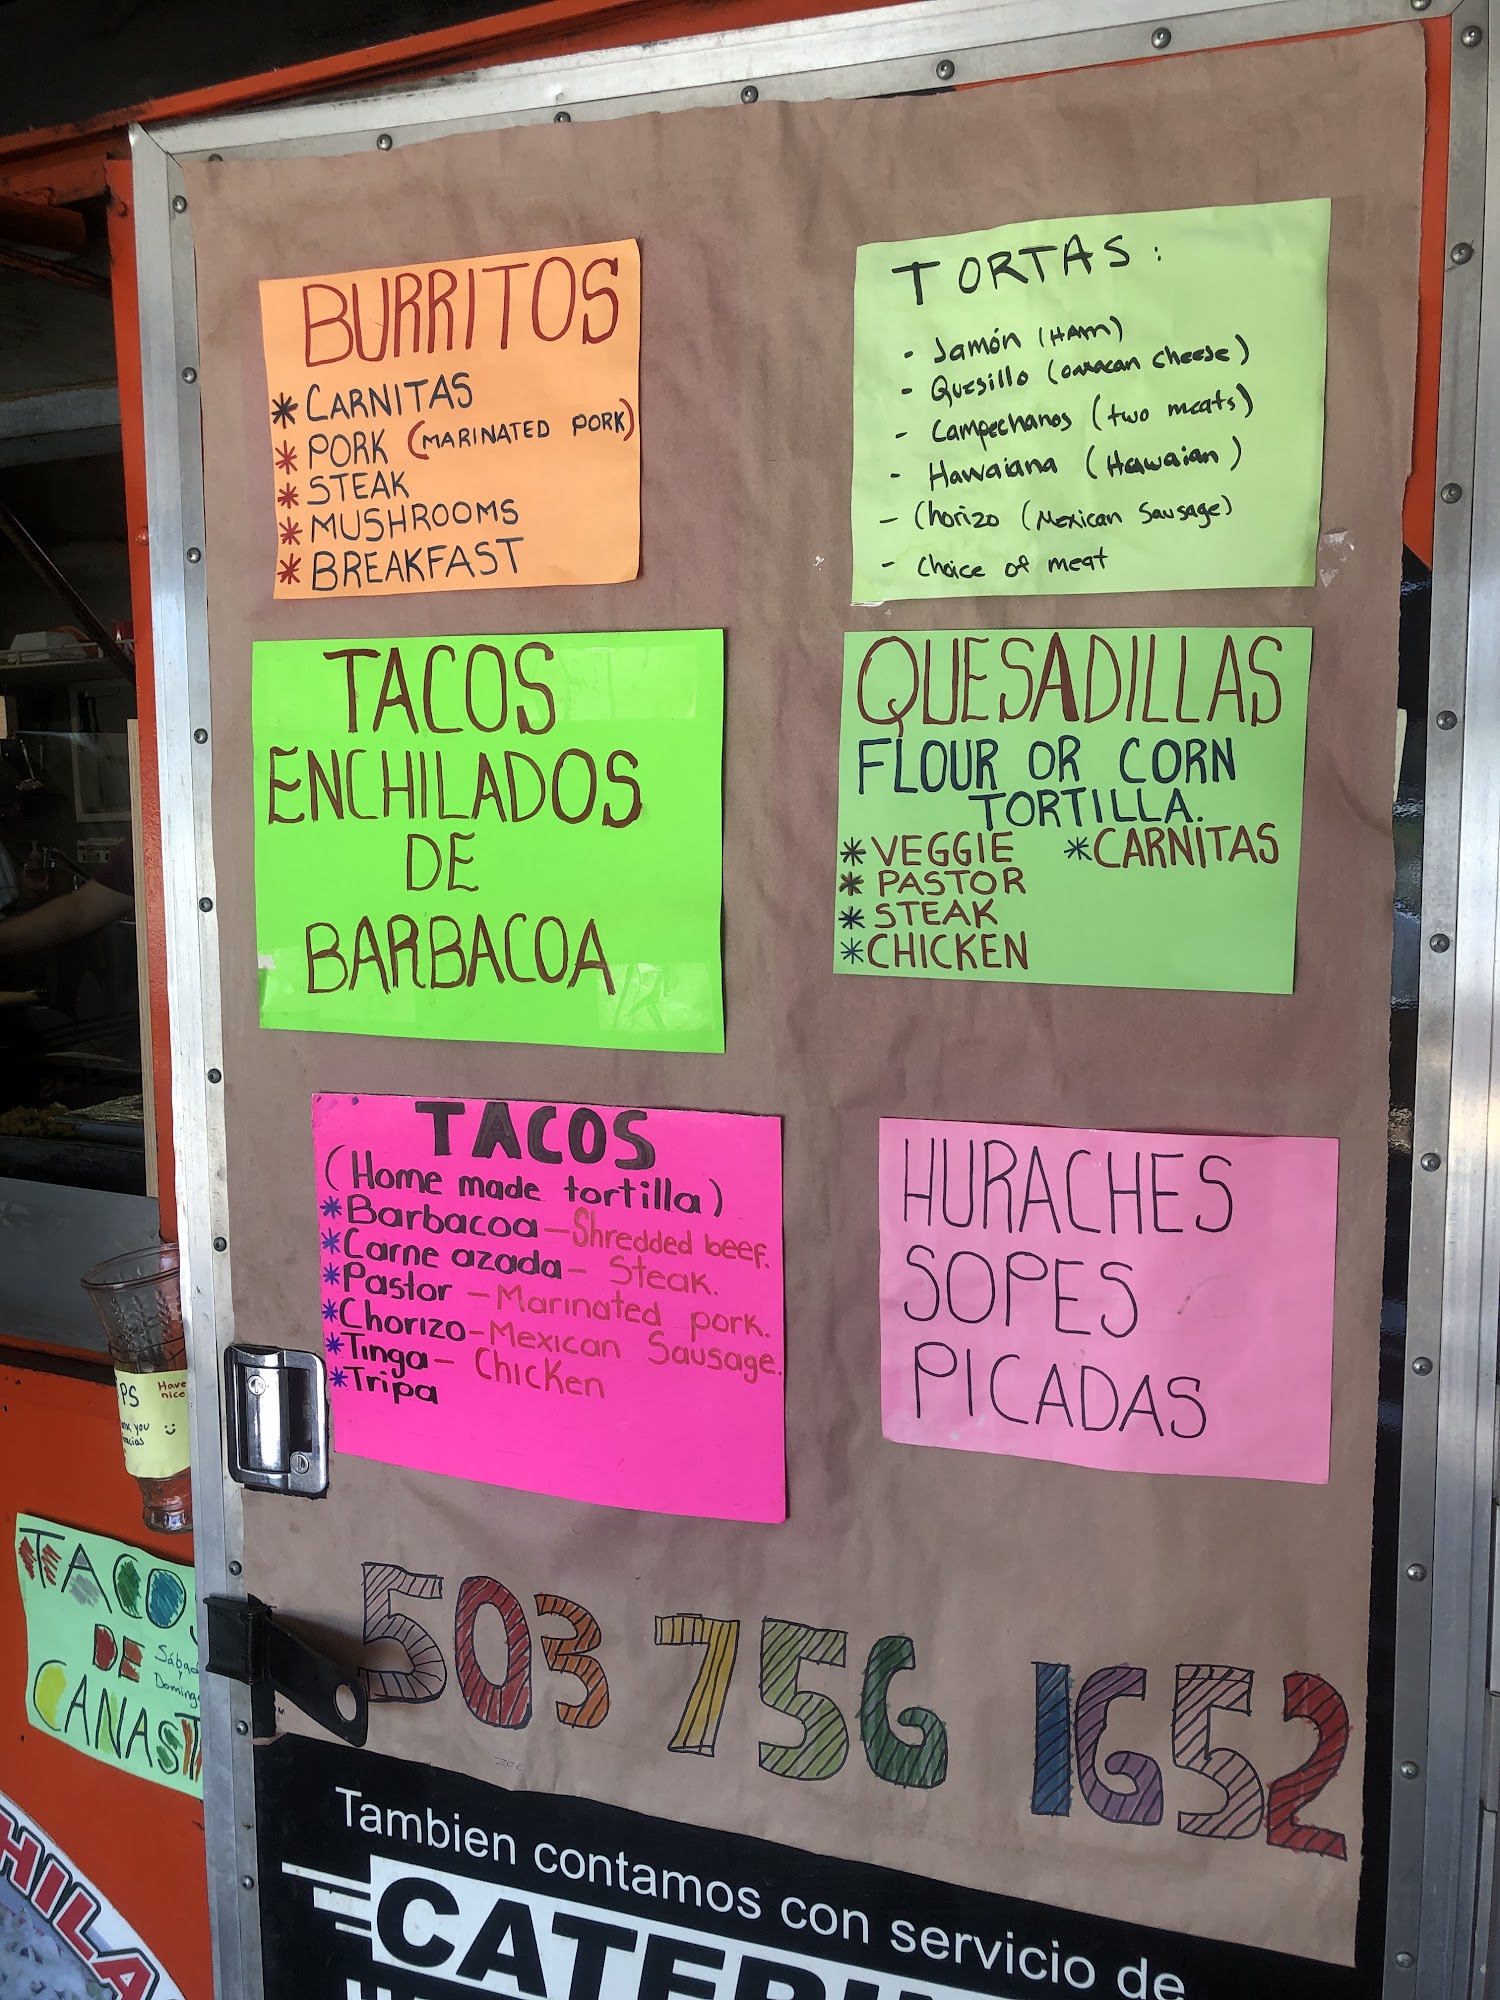 BURRITOS
* CARNITAS
* PORK (MARINATED PORK)
* STEAK
* MUSHROOMS
* BREAKFAST
TORTAS:
- Jamón (HAM)
- Quesillo (oaxacan cheese)
- Campechanos (two meats)
- Hawaiana (Hawaian)
- Chorizo (Mexican Sausage)
- Choice of meat
TACOS
ENCHILADOS
DE
BARBACOA
QUESADILLAS
FLOUR OR CORN
TORTILLA.
* VEGGIE * CARNITAS
* PASTOR
* STEAK
* CHICKEN
TACOS
(Home made tortilla)
* Barbacoa - Shredded beef.
* Carne azada - Steak.
* Pastor - Marinated pork.
* Chorizo - Mexican Sausage.
* Tinga - Chicken
* Tripa
HURACHES
SOPES
PICADAS
Have
nice
TACOS
DE
Sábado
y
Domingo
CANAST
503 756 1652
Tambien contamos con servicio de